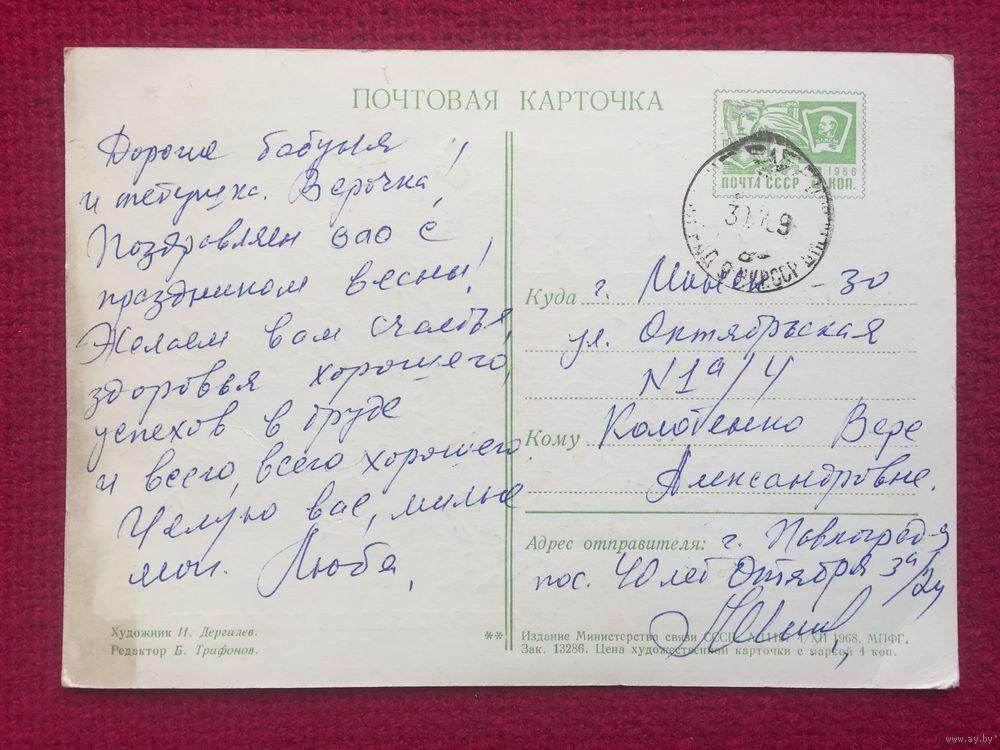 ПОЧТОВАЯ КАРТОЧКА
Дорогие бабуня
и тетушка Верочка!
Поздравляем вас с
праздником весны!
Желаем вам счастья,
здоровья хорошего,
успехов в труде
и всего, всего хорошего.
Целую вас, милые
мои. Люба.
Художник И. Дергилев.
Редактор Б. Трифонов.
**
ВЛКСМ
1966
ПОЧТА СССР КОП.
УКР.ССР
Куда г. Минск - 30
ул. Октябрьская
N 1а/4
Кому Колотенко Вере
Александровне.
Адрес отправителя: г. Павлоград-9
пос. 40 лет Октября 3а/24
Издание Министерства связи СССР. 4/XII 1968. МПФГ.
Зак. 13286. Цена художественной карточки с маркой 4 коп.
www.ay.by